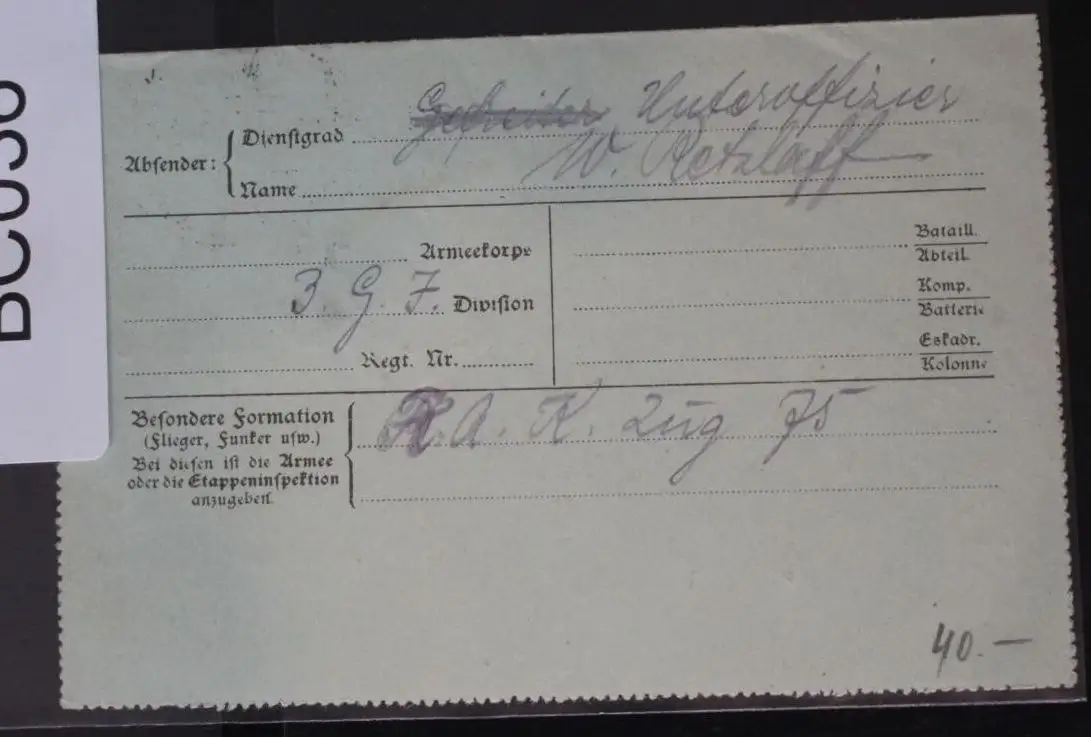 Absender:
Dienstgrad Gefreiter Unteroffizier
Name W. Retzlaff
Armeekorps
3. G. I. Division
Regt. Nr.
Bataill.
Abteil.
Komp.
Batterie
Eskadr.
Kolonne
Besondere Formation
(Flieger, Funker usw.)
Bei diesen ist die Armee
oder die Etappeninspektion
anzugeben.
A. K. Zug 75
40.—